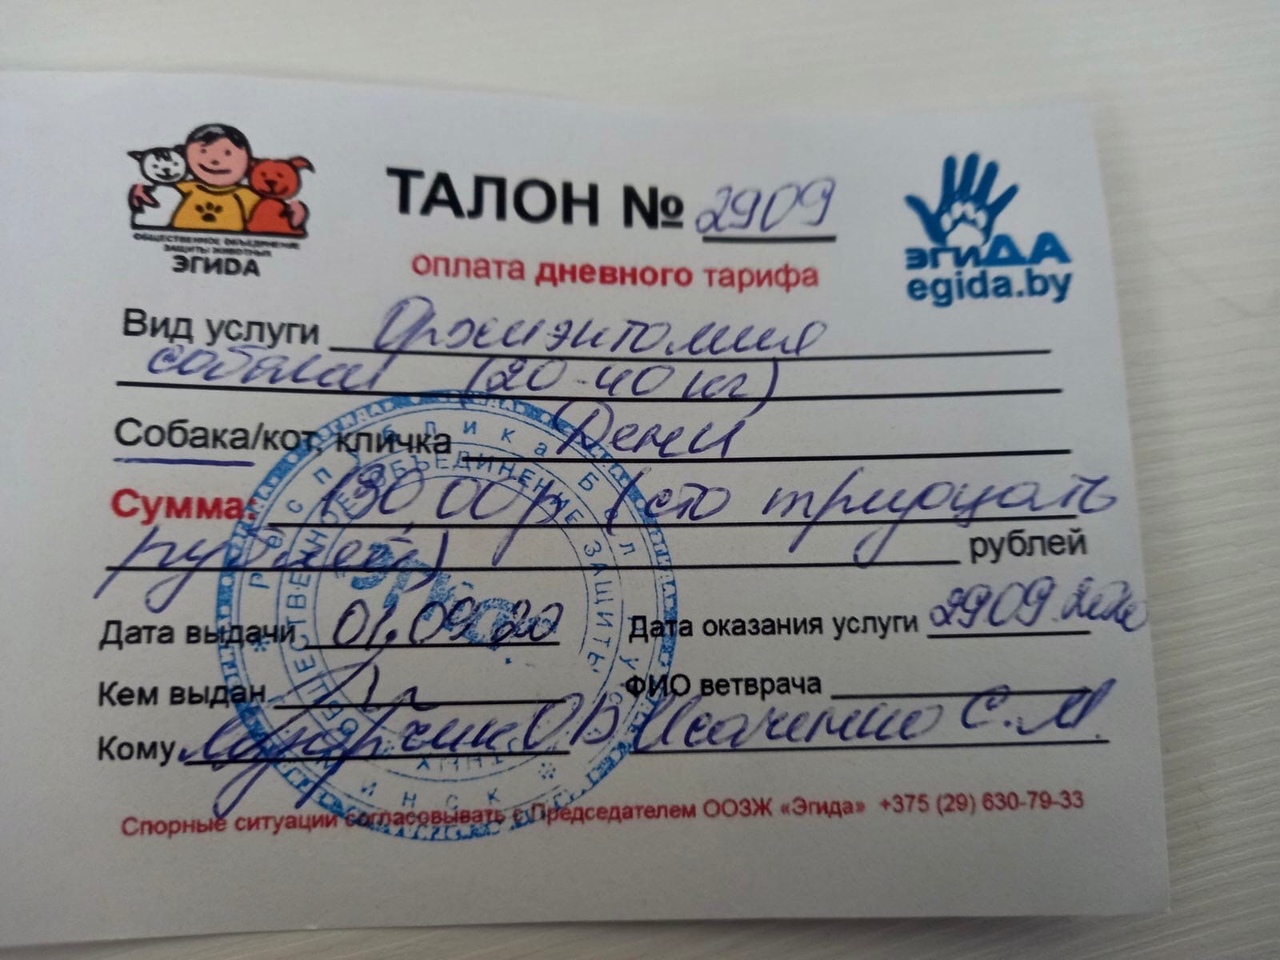 ОБЩЕСТВЕННОЕ ОБЪЕДИНЕНИЕ
ЗАЩИТЫ ЖИВОТНЫХ
ЭГИДА
ТАЛОН № 2909
оплата дневного тарифа
эгиДА
egida.by
Вид услуги Орхиэктомия
собаки (20-40 кг)
Собака/кот, кличка Дени
Сумма: 130 00р (сто тридцать
рублей) рублей
Дата выдачи 01.09.20 Дата оказания услуги 2909.2020
Кем выдан ФИО ветврача
Кому О В Исаченко С.М.
Спорные ситуации согласовывать с Председателем ООЗЖ «Эгида» +375 (29) 630-79-33
Республика Беларусь
ОБЩЕСТВЕННОЕ ОБЪЕДИНЕНИЕ ЗАЩИТЫ
Эгида
Минск